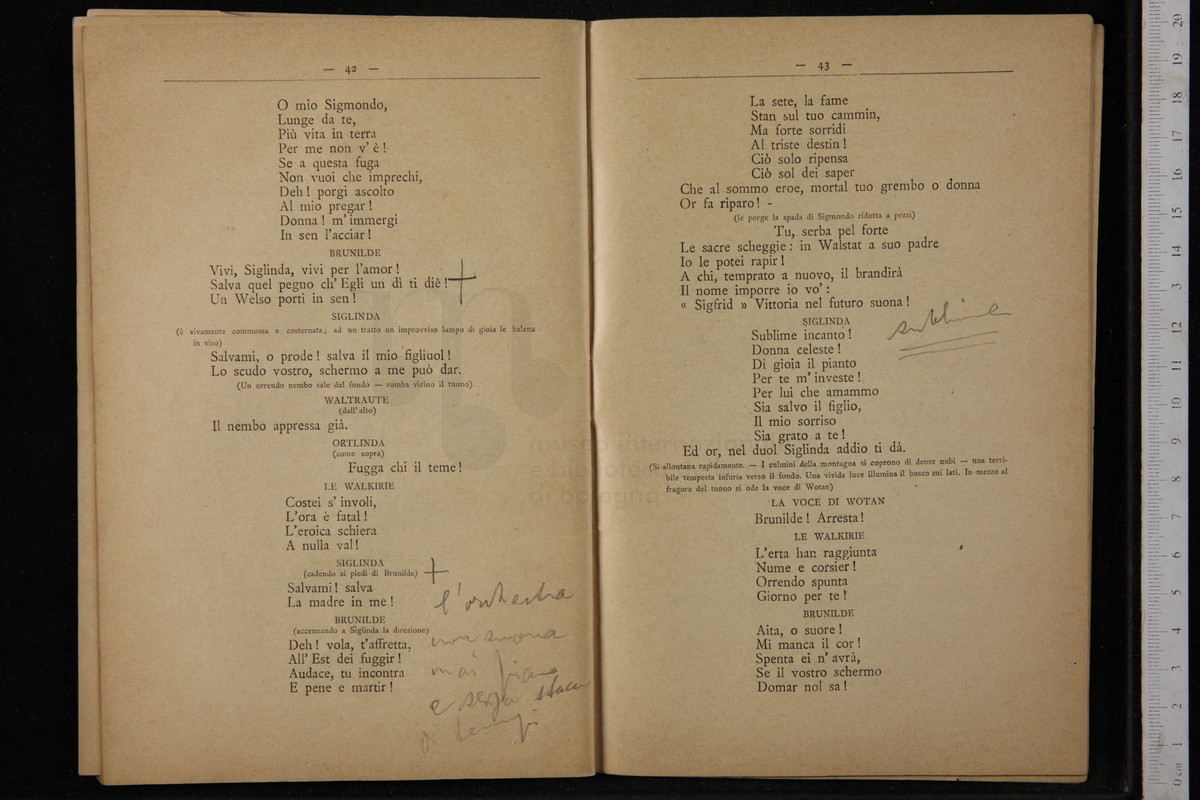 — 42 —
O mio Sigmondo,
Lunge da te,
Più vita in terra
Per me non v' è !
Se a questa fuga
Non vuoi che imprechi,
Deh ! porgi ascolto
Al mio pregar !
Donna ! m' immergi
In sen l'acciar !
BRUNILDE
Vivi, Siglinda, vivi per l'amor !
Salva quel pegno ch' Egli un dì ti diè !
Un Welso porti in sen !
SIGLINDA
(è vivamente commossa e costernata ; ad un tratto un improvviso lampo di gioia le balena
in viso)
Salvami, o prode ! salva il mio figliuol !
Lo scudo vostro, schermo a me può dar.
(Un orrendo nembo sale dal fondo — romba vicino il tuono).
WALTRAUTE
(dall' alto)
Il nembo appressa già.
ORTLINDA
(come sopra)
Fugga chi il teme !
LE WALKIRIE
Costei s' involi,
L'ora è fatal !
L'eroica schiera
A nulla val !
SIGLINDA
(cadendo ai piedi di Brunilde)
Salvami ! salva
La madre in me !
l'orchestra
BRUNILDE
(accennando a Siglinda la direzione)
non suona
Deh ! vola, t'affretta,
All' Est dei fuggir !
mai piano
Audace, tu incontra
E pene e martir !
e senza
— 43 —
La sete, la fame
Stan sul tuo cammin,
Ma forte sorridi
Al triste destin !
Ciò solo ripensa
Ciò sol dei saper
Che al sommo eroe, mortal tuo grembo o donna
Or fa riparo ! -
(le porge la spada di Sigmondo ridotta a pezzi)
Tu, serba pel forte
Le sacre scheggie : in Walstat a suo padre
Io le potei rapir !
A chi, temprato a nuovo, il brandirà
Il nome imporre io vo' :
« Sigfrid » Vittoria nel futuro suona !
sublime
SIGLINDA
Sublime incanto !
Donna celeste !
Di gioia il pianto
Per te m' investe !
Per lui che amammo
Sia salvo il figlio,
Il mio sorriso
Sia grato a te !
Ed or, nel duol Siglinda addio ti dà.
(Si allontana rapidamente. — I culmini della montagna si coprono di dense nubi — una terri-
bile tempesta infuria verso il fondo. Una vivida luce illumina il bosco sui lati. In mezzo al
fragore del tuono si ode la voce di Wotan)
LA VOCE DI WOTAN
Brunilde ! Arresta !
LE WALKIRIE
L'erta han raggiunta
Nume e corsier !
Orrendo spunta
Giorno per te !
BRUNILDE
Aita, o suore !
Mi manca il cor !
Spenta ei n' avrà,
Se il vostro schermo
Domar nol sa !
museo internazionale
e biblioteca
di bologna
0 cm 1 2 3 4 5 6 7 8 9 10 11 12 13 14 15 16 17 18 19 20